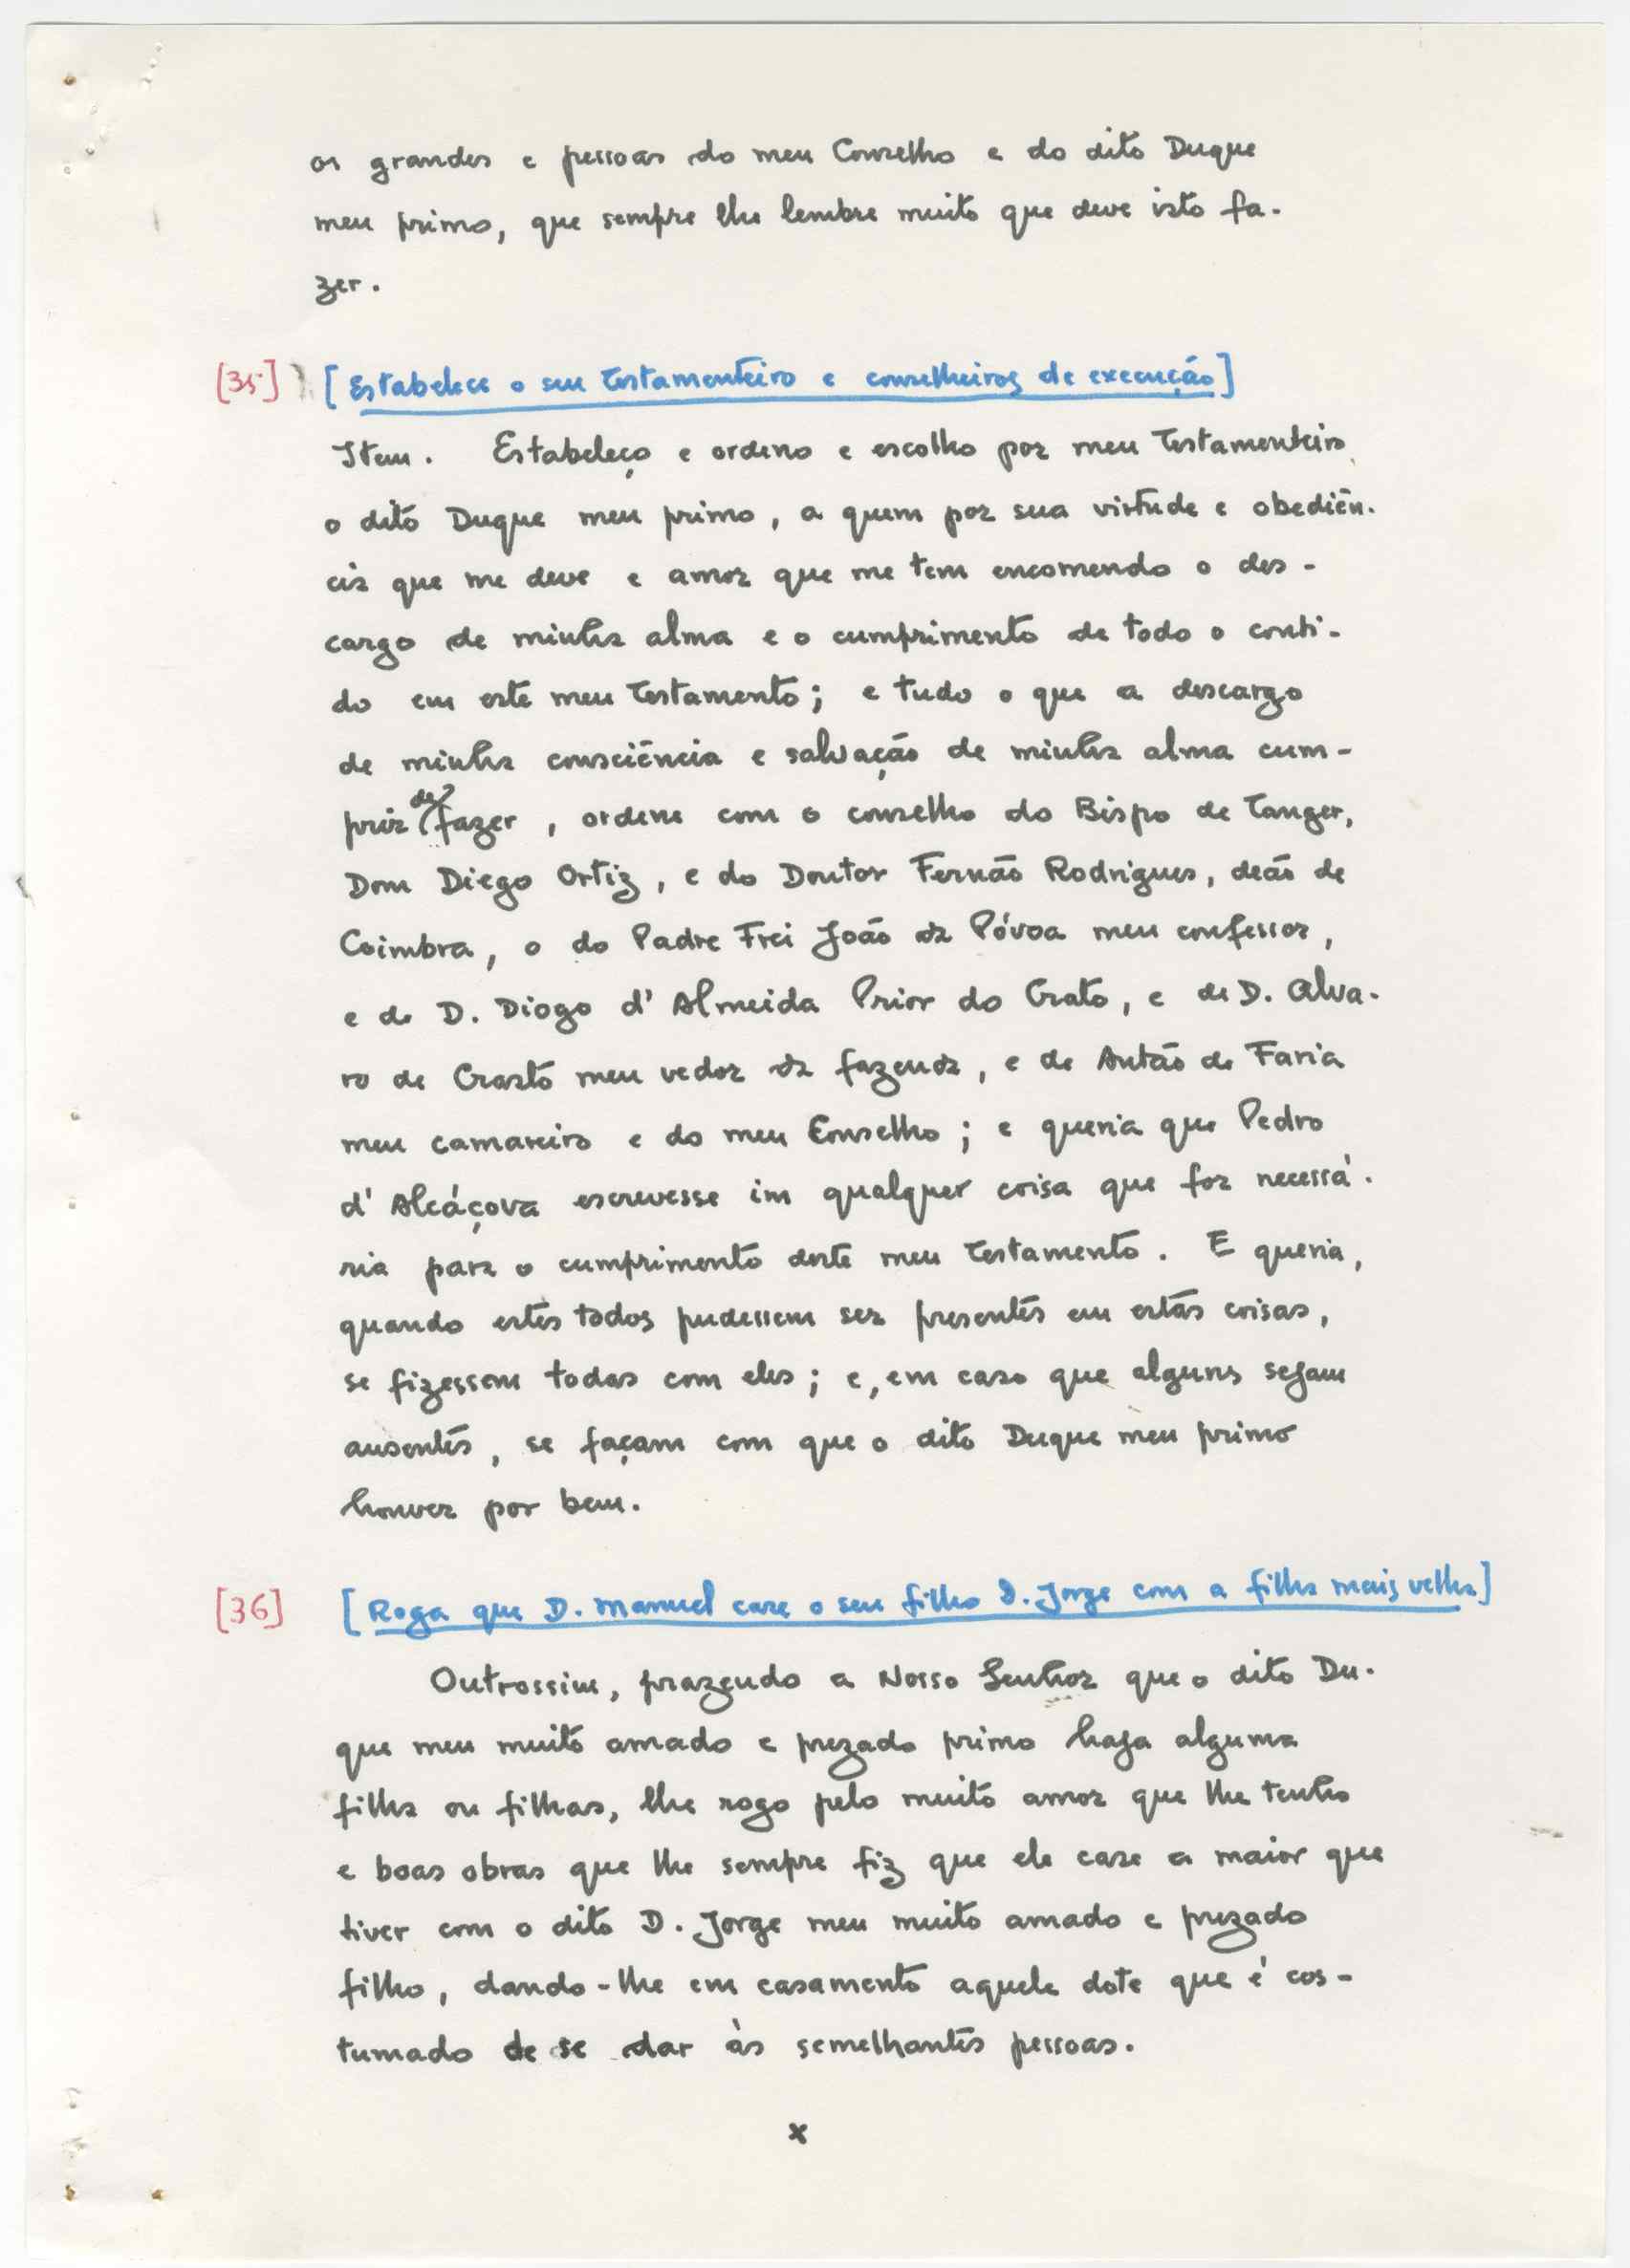 os grandes e pessoas do meu Conselho e do dito Duque
meu primo, que sempre lhe lembre muito que deve isto fa-
zer.
[35] [Estabelece o seu testamenteiro e conselheiros de execução]
Item. Estabeleço e ordeno e escolho por meu testamenteiro
o dito Duque meu primo, a quem por sua virtude e obediên-
cia que me deve e amor que me tem encomendo o des-
cargo de minha alma e o cumprimento de todo o conti-
do em este meu testamento; e tudo o que a descargo
de minha consciência e salvação de minha alma cum-
prir de fazer, ordene com o conselho do Bispo de Tanger,
Dom Diego Ortiz, e do Doutor Fernão Rodrigues, deão de
Coimbra, o do Padre Frei João da Póvoa meu confessor,
e de D. Diogo d'Almeida Prior do Crato, e de D. Alva-
ro de Crasto meu vedor da fazenda, e de Antão de Faria
meu camareiro e do meu Conselho; e queria que Pedro
d'Alcáçova escrevesse im qualquer coisa que for necessá-
ria para o cumprimento deste meu testamento. E queria,
quando estes todos pudessem ser presentes em estas coisas,
se fizessem todas com eles; e, em caso que alguns sejam
ausentes, se façam com que o dito Duque meu primo
houver por bem.
[36] [Roga que D. Manuel case o seu filho D. Jorge com a filha mais velha]
Outrossim, prazendo a Nosso Senhor que o dito Du-
que meu muito amado e prezado primo haja alguma
filha ou filhas, lhe rogo pelo muito amor que lhe tenho
e boas obras que lhe sempre fiz que ele case a maior que
tiver com o dito D. Jorge meu muito amado e prezado
filho, dando-lhe em casamento aquele dote que é cos-
tumado de se dar às semelhantes pessoas.
x